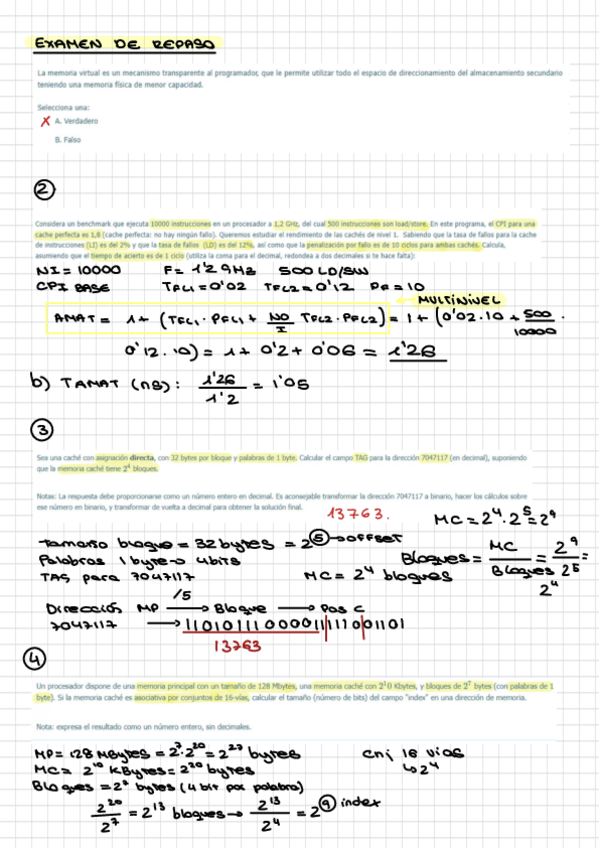 EXAMEN DE REPASO
La memoria virtual es un mecanismo transparente al programador, que le permite utilizar todo el espacio de direccionamiento del almacenamiento secundario
teniendo una memoria física de menor capacidad.
Selecciona una:
X A. Verdadero
B. Falso
2
Considera un benchmark que ejecuta 10000 instrucciones en un procesador a 1,2 GHz, del cual 500 instrucciones son load/store. En este programa, el CPI para una
cache perfecta es 1,8 (cache perfecta: no hay ningún fallo). Queremos estudiar el rendimiento de las cachés de nivel 1. Sabiendo que la tasa de fallos para la cache
de instrucciones (LI) es del 2% y que la tasa de fallos (LD) es del 12%, así como que la penalización por fallo es de 10 ciclos para ambas cachés. Calcula,
asumiendo que el tiempo de acierto es de 1 ciclo (utiliza la coma para el decimal, redondea a dos decimales si te hace falta):
NI = 10000 F = 1'2 GHz 500 LD/SW
CPI BASE TFL1 = 0'02 TFL2 = 0'12 PF = 10
MULTINIVEL
AMAT = 1 + (TFL1 · PFL1 + NO/I TFL2 · PFL2) = 1 + (0'02 · 10 + 500/10000 ·
0'12 · 10) = 1 + 0'2 + 0'06 = 1'26
b) TAMAT (ns): 1'26/1'2 = 1'05
3
Sea una caché con asignación directa, con 32 bytes por bloque y palabras de 1 byte. Calcular el campo TAG para la dirección 7047117 (en decimal), suponiendo
que la memoria caché tiene 2^4 bloques.
Notas: La respuesta debe proporcionarse como un número entero en decimal. Es aconsejable transformar la dirección 7047117 a binario, hacer los cálculos sobre
ese número en binario, y transformar de vuelta a decimal para obtener la solución final.
13763.
MC = 2^4 · 2^5 = 2^9
Tamaño bloque = 32 bytes = 2^5 → OFFSET
Palabras 1 byte → 4bits
Bloques = MC/Bloques = 2^9/2^5 = 2^4
TAG para 7047117 MC = 2^4 bloques
/5
Dirección MP → Bloque → Pos C
7047117 → 11010111000011111001101
13763
4
Un procesador dispone de una memoria principal con un tamaño de 128 Mbytes, una memoria caché con 2^10 Kbytes, y bloques de 2^7 bytes (con palabras de 1
byte). Si la memoria caché es asociativa por conjuntos de 16-vías, calcular el tamaño (número de bits) del campo "index" en una dirección de memoria.
Nota: expresa el resultado como un número entero, sin decimales.
MP = 128 MBytes = 2^7 · 2^20 = 2^27 bytes Cnj 16 vias
MC = 2^10 KBytes = 2^20 bytes ↳ 2^4
Bloques = 2^7 bytes (4 bit por palabra)
2^20/2^7 = 2^13 bloques → 2^13/2^4 = 2^9 index